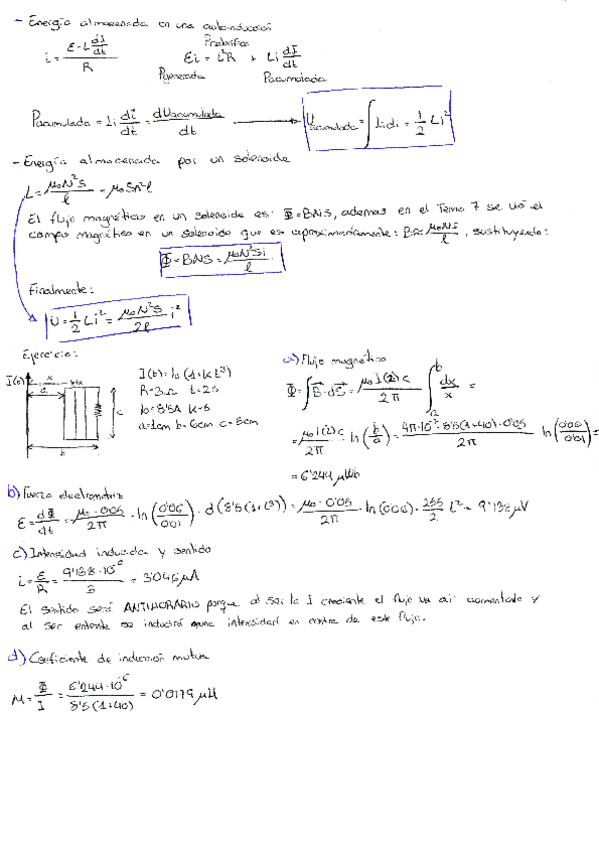 - Energía almacenada en una autoinducción
i = (ε - L dI/dt) / R
Pdisipada
εi = i²R + Li dI/dt
Pgenerada Pacumulada
Pacumulada = Li di/dt = dUacumulada/dt → Uacumulada = ∫ Lidi = 1/2 Li²
- Energía almacenada por un solenoide
L = μ₀N²S/l = μ₀Sn²l
El flujo magnético en un solenoide es: Φ = BNS, ademas en el Tema 7 se vió el
campo magnético en un solenoide que es aproximadamente: B ≈ μ₀Ni/l, sustituyendo:
Φ = BNS = μ₀N²Si/l
Finalmente:
U = 1/2 Li² = μ₀N²S/2l i²
Ejercicio:
I(t) x dx
a
c
b
I(t) = I₀ (1+kt³)
R=3Ω t=2s
I₀=8'5A k=5
a=1cm b=6cm c=5cm
a) Flujo magnético
Φ = ∫ B·dS = μ₀I(2)c/2π ∫ dx/x =
= μ₀I(2)c/2π · ln(b/a) = 4π·10⁻⁷·8'5(1+40)·0'05/2π ln(0'06/0'01) =
= 6'244 μWb
b) Fuerza electromotriz
ε = dΦ/dt = μ₀·0'05/2π · ln(0'06/0'01) · d(8'5(1+t³)) = μ₀·0'05/2π · ln(006) · 255/2 t² = 9'138 μV
c) Intensidad inducida y sentido
i = ε/R = 9'138·10⁻⁶/3 = 3'046 μA
El sentido será ANTIHORARIO porque al ser la I creciente el flujo va a ir aumentado y
al ser entrante se inducirá una intensidad en contra de este flujo.
d) Coeficiente de inducción mutua
M = Φ/I = 6'244·10⁻⁶/8'5(1+40) = 0'0179 μH